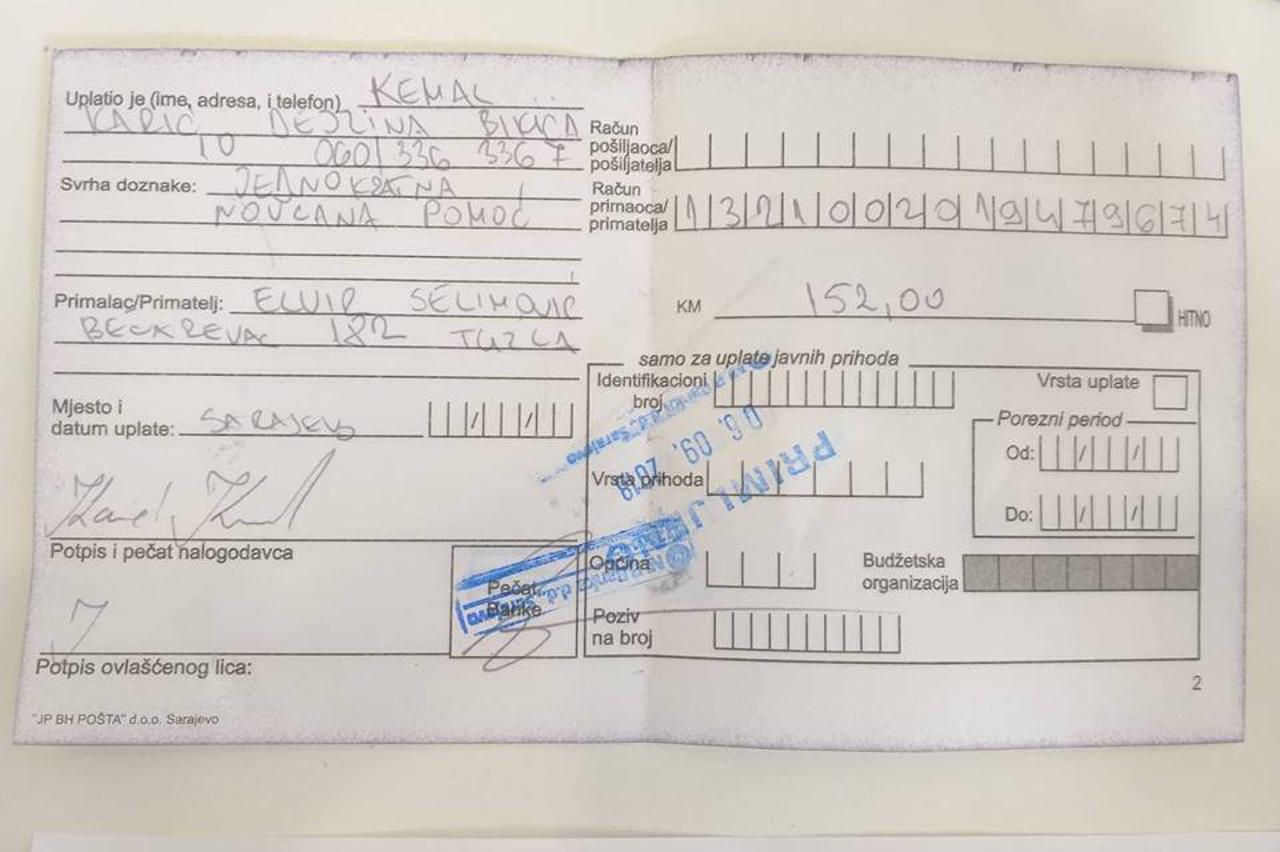 Uplatio je (ime, adresa, i telefon) KEMAL
KARIĆ DEJZINA BIKICA
10 060/ 336 3367
Svrha doznake: JEDNOKRATNA
NOVČANA POMOĆ
Primalac/Primatelj: ELVIR SELIMOVIĆ
182 TUZLA
Mjesto i
datum uplate: SARAJEVO / /
Potpis i pečat nalogodavca
Potpis ovlašćenog lica:
"JP BH POŠTA" d.o.o. Sarajevo
Pečat
Banke
Račun
pošiljaoca/
pošiljatelja
Račun
primaoca/
primatelja 1321002019479674
KM 152,00 HITNO
samo za uplate javnih prihoda
Identifikacioni
broj
Vrsta uplate
Porezni period
Od: / /
Do: / /
Vrsta prihoda
Općina
Budžetska
organizacija
Poziv
na broj
2
d.d. Sarajevo
06. 09. 2019
PRIMLJENO
NLB Banka d.d. Sarajevo